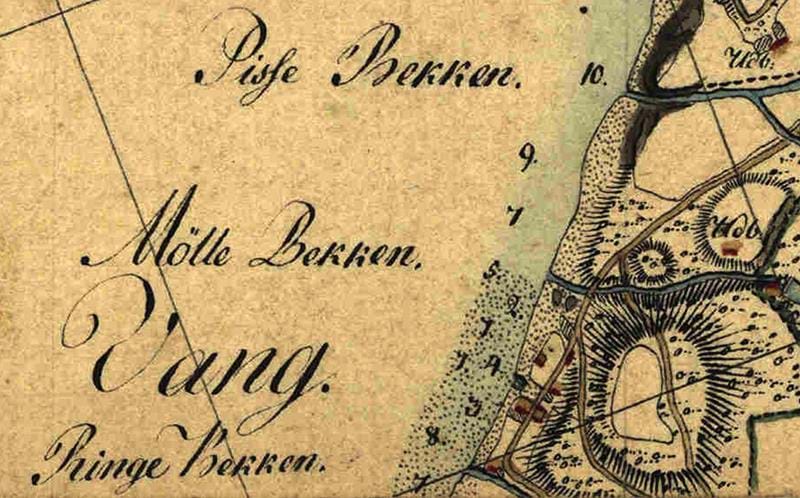 Pisse Bekken.
10.
Udb.
9.
7
Udb.
Mölle Bekken.
5
2
1
Vang.
1.
4
3
8
Ringe Bekken.
7